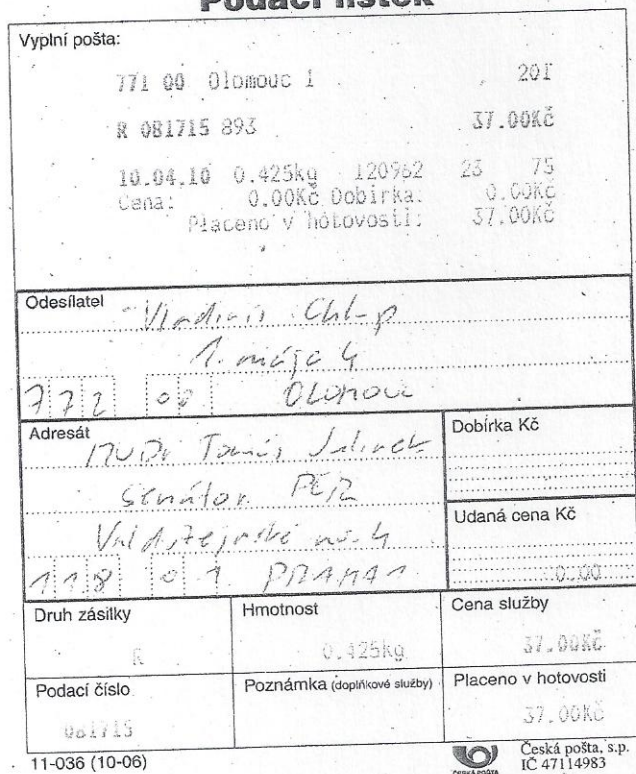 Podací lístek
Vyplní pošta:
771 00 Olomouc 1 201
R 081715 893 37.00Kč
10.04.10 0.425kg 120962 23 75
Cena: 0.00Kč Dobírka: 0.00Kč
Placeno v hotovosti: 37.00Kč
Odesílatel
Vladimír Chlup
1. máje 4
772 00 OLOMOUC
Adresát
MUDr Tomáš Julínek
Senátor PČR
Valdštejnské ná. 4
118 01 PRAHA 1
Dobírka Kč
Udaná cena Kč
0.00
Druh zásilky Hmotnost Cena služby
R 0.425kg 37.00Kč
Podací číslo Poznámka (doplňkové služby) Placeno v hotovosti
081715 37.00Kč
11-036 (10-06)
ČESKÁ POŠTA
Česká pošta, s.p.
IČ 47114983